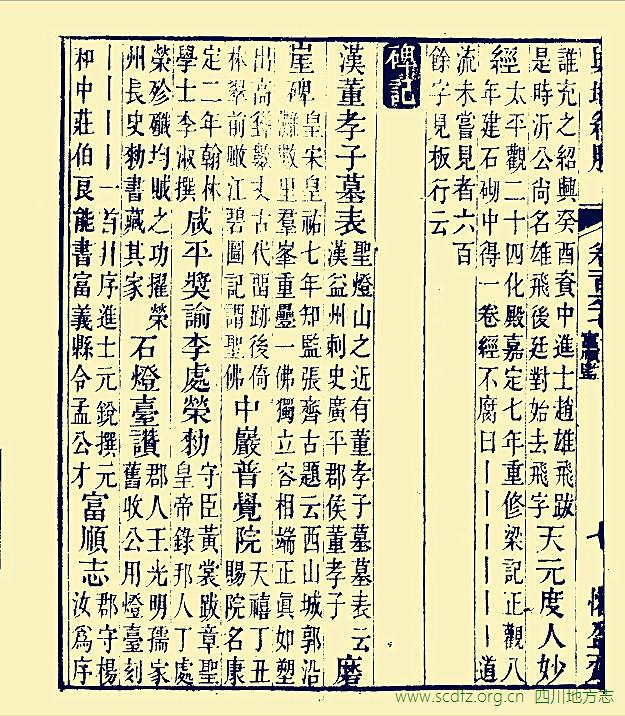 輿地紀勝 卷一百六十七 富順監 七 懼盈齋
誰充之紹興癸酉賚中進士趙雄飛跋
是時沂公尚名雄飛後廷對始去飛字
天元度人妙
經
太平觀二十四化殿嘉定七年重修梁記正觀八
年建石砌中得一卷經不腐曰｜｜｜｜｜｜道
流未嘗見者六百
餘字見板行云
碑記
漢董孝子墓表
聖燈山之近有董孝子墓墓表云
漢益州刺史廣平郡侯董孝子
磨
崖碑
皇宋皇祐七年知監張齊古題云西山城郭沿
灘數里羣峯重疊一佛獨立容相端正眞如塑
出高聳數丈古代畱跡後倚
林翠前瞰江碧圖記謂聖佛
中巖普覺院
天禧丁丑
賜院名康
定二年翰林
學士李淑撰
咸平奬諭李處榮勑
守臣黃裳跋章聖
皇帝錄邦人丁處
榮殄殲均賊之功擢榮
州長史勑書藏其家
石燈臺讚
郡人王光明孺家
舊收公用燈臺刻
｜｜｜｜一首并序進士元銳撰元
和中莊伯良能書富義縣令孟公才
富順志
郡守楊
汝爲序
www.scdfz.org.cn 四川地方志